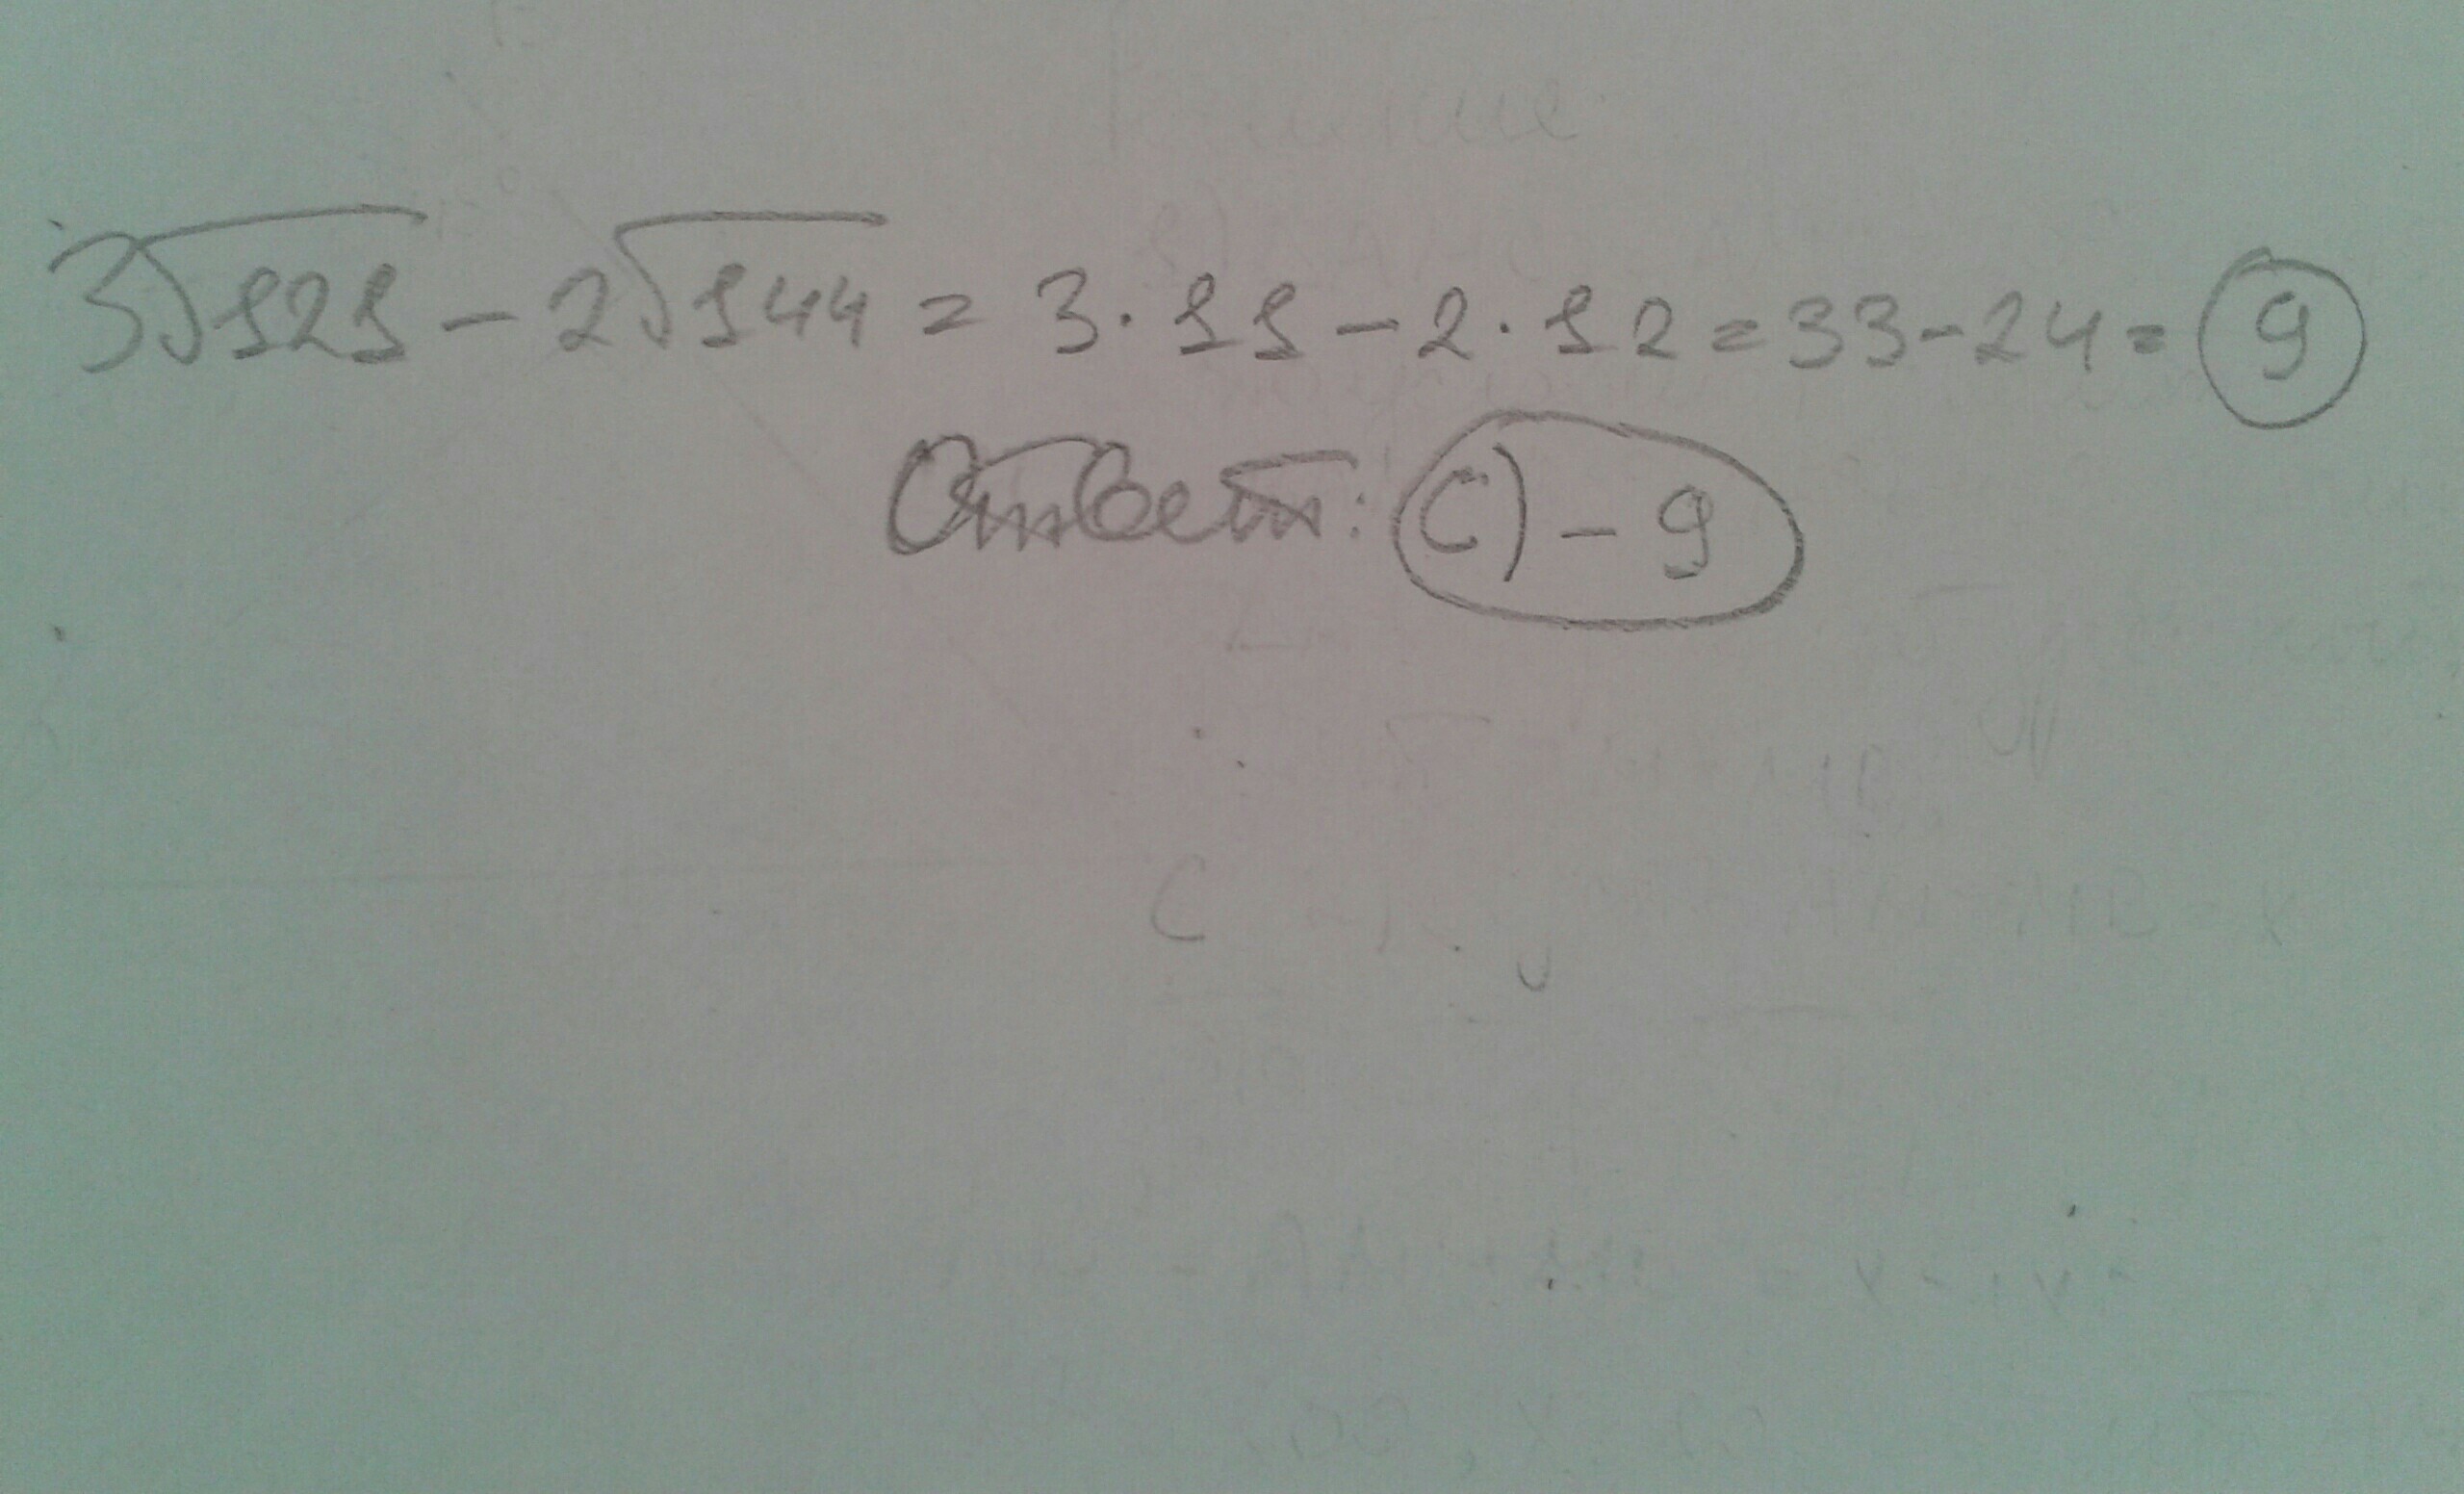 3√121 - 2√144 = 3 · 11 - 2 · 12 = 33 - 24 = 9
Ответ: C) - 9